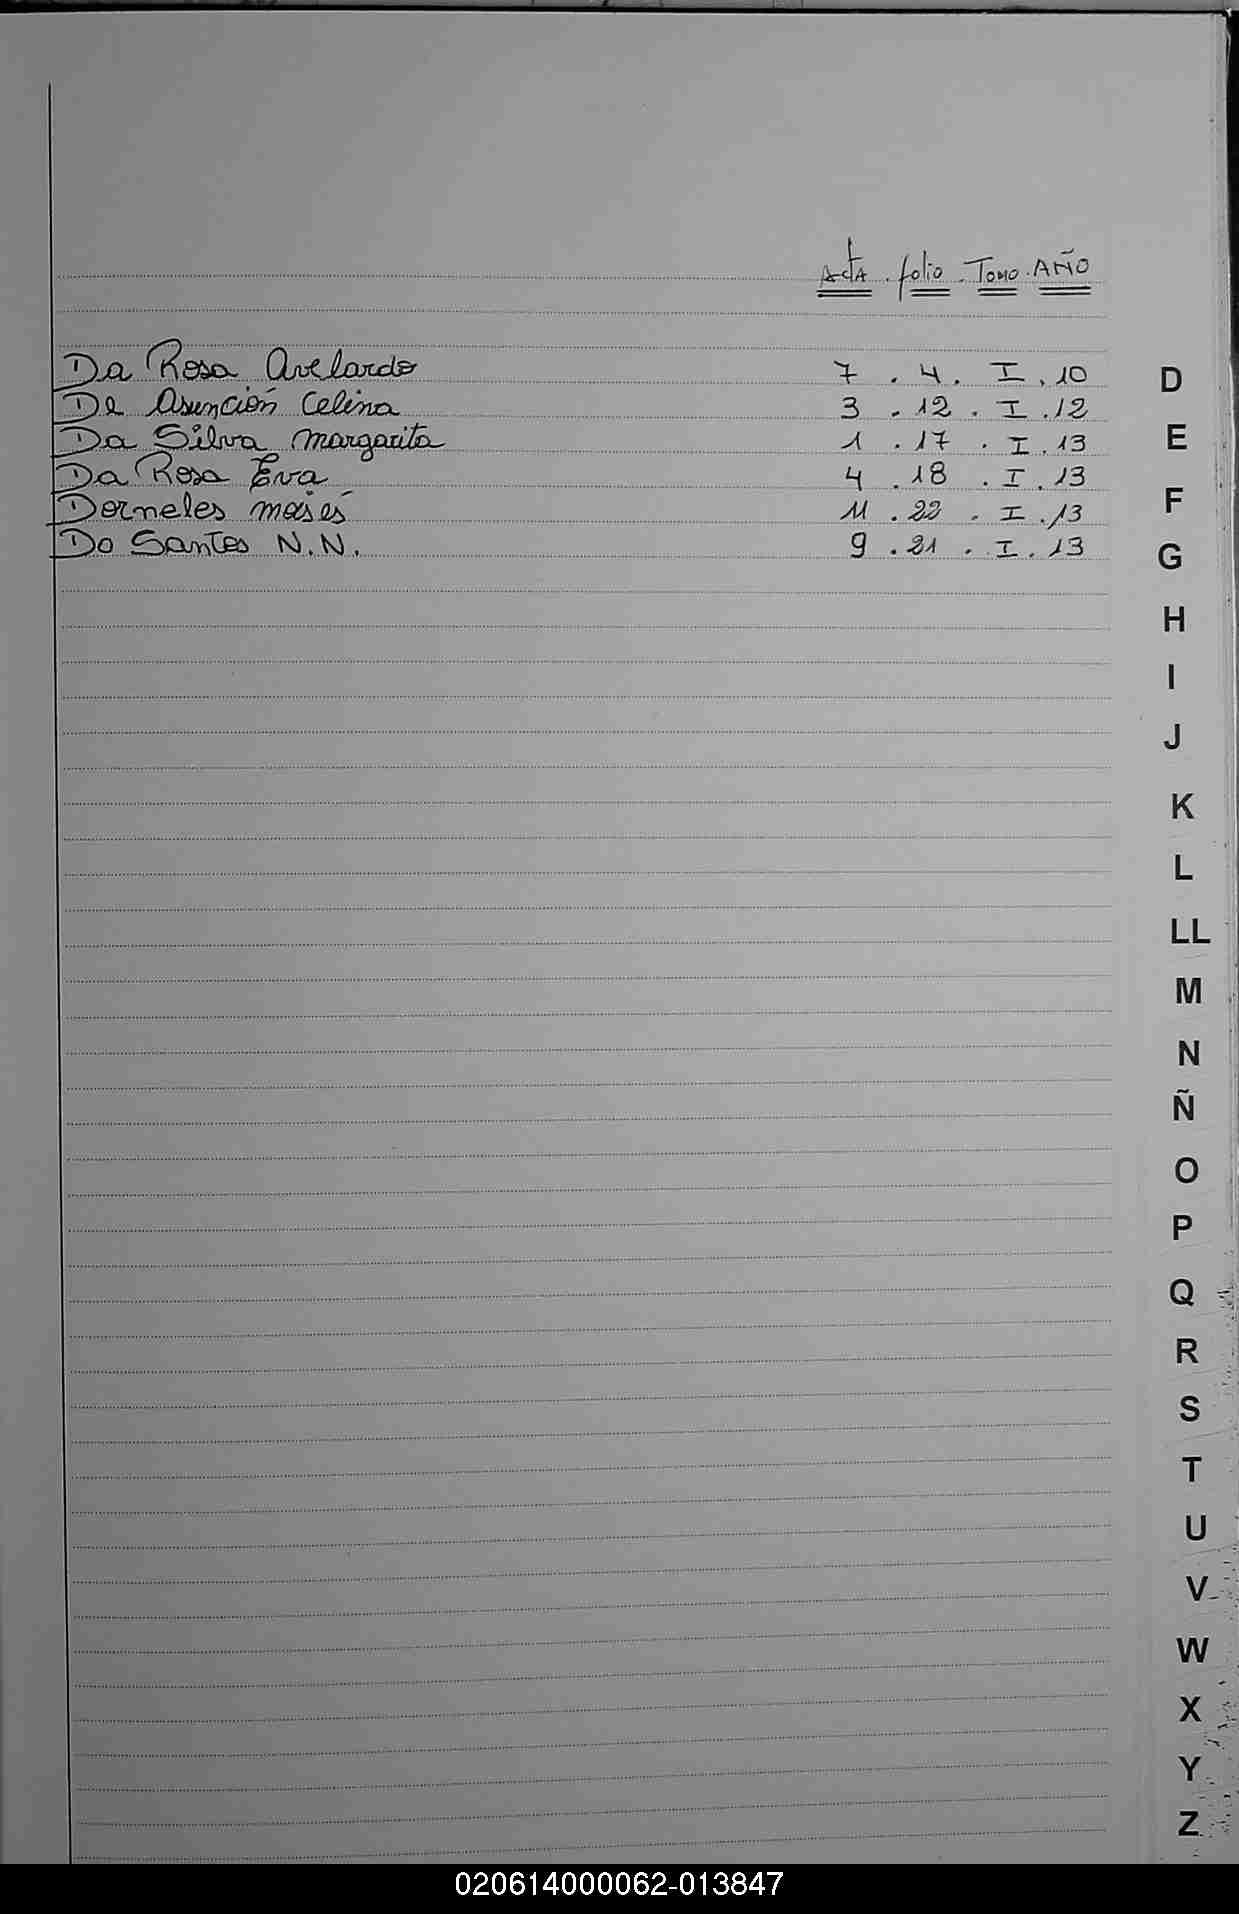 Acta . folio . Tomo . AÑO
Da Rosa Avelardo 7 . 4 . I . 10
De Asunción Celina 3 . 12 . I . 12
Da Silva Margarita 1 . 17 . I . 13
Da Rosa Eva 4 . 18 . I . 13
Dorneles moisés 11 . 22 . I . 13
Do Santos N.N. 9 . 21 . I . 13
D
E
F
G
H
I
J
K
L
LL
M
N
Ñ
O
P
Q
R
S
T
U
V
W
X
Y
Z
020614000062-013847